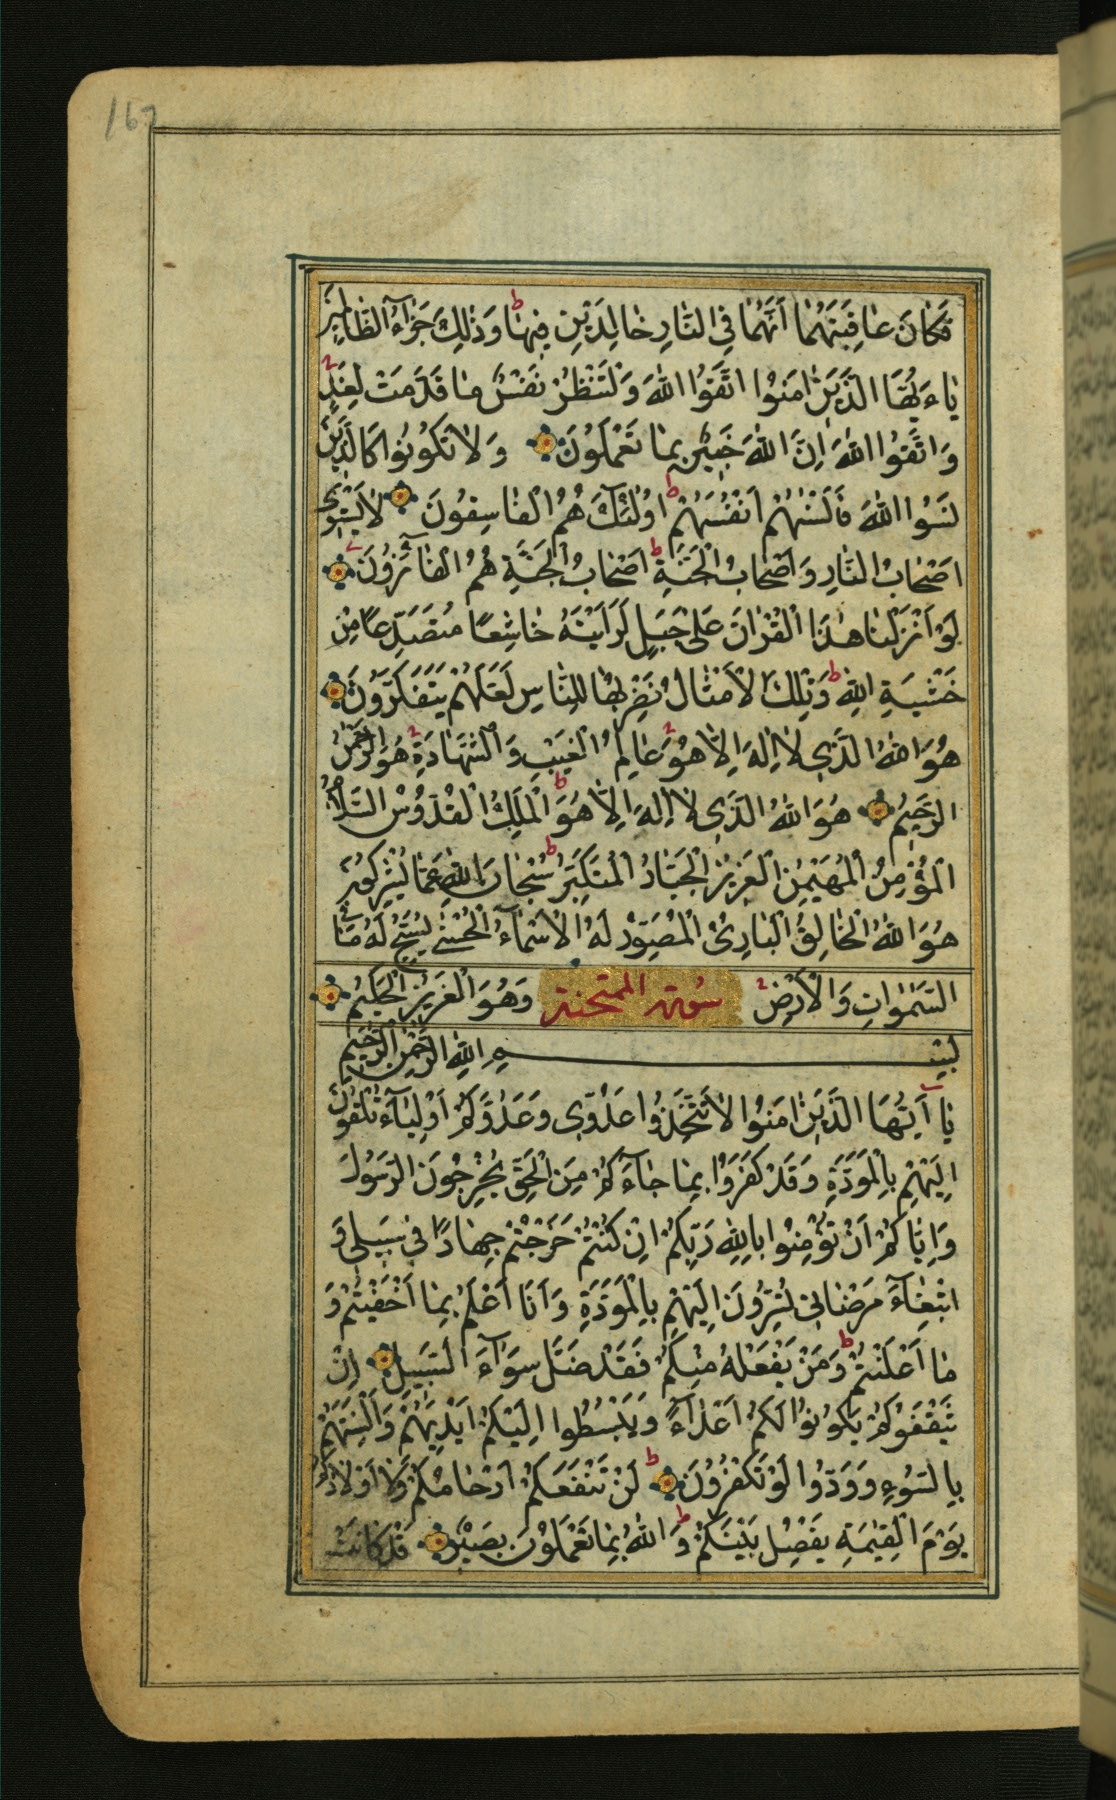 167
فَكَانَ عَاقِبَتَهُمَا أَنَّهُمَا فِي النَّارِ خَالِدَيْنِ فِيهَا ط وَذَٰلِكَ جَزَآءُ الظَّالِمِينَ
يَاءَيُّهَا الَّذِينَ اٰمَنُوا اتَّقُوا اللّٰهَ وَلْتَنْظُرْ نَفْسٌ مَا قَدَّمَتْ لِغَدٍ
وَاتَّقُوا اللّٰهَ اِنَّ اللّٰهَ خَبِيرٌ بِمَا تَعْمَلُونَ وَلَا تَكُونُوا كَالَّذِينَ
نَسُوا اللّٰهَ فَأَنْسٰهُمْ اَنْفُسَهُمْ ط اُولٰئِكَ هُمُ الْفَاسِقُونَ لَا يَسْتَوِي
اَصْحَابُ النَّارِ وَاَصْحَابُ الْجَنَّةِ ط اَصْحَابُ الْجَنَّةِ هُمُ الْفَائِزُونَ
لَوْ اَنْزَلْنَا هٰذَا الْقُرْاٰنَ عَلٰى جَبَلٍ لَرَاَيْتَهُ خَاشِعًا مُتَصَدِّعًا مِنْ
خَشْيَةِ اللّٰهِ ط وَتِلْكَ الْاَمْثَالُ نَضْرِبُهَا لِلنَّاسِ لَعَلَّهُمْ يَتَفَكَّرُونَ
هُوَ اللّٰهُ الَّذِي لَا اِلٰهَ اِلَّا هُوَ عَالِمُ الْغَيْبِ وَالشَّهَادَةِ هُوَ الرَّحْمٰنُ
الرَّحِيمُ هُوَ اللّٰهُ الَّذِي لَا اِلٰهَ اِلَّا هُوَ ط الْمَلِكُ الْقُدُّوسُ السَّلَامُ
الْمُؤْمِنُ الْمُهَيْمِنُ الْعَزِيزُ الْجَبَّارُ الْمُتَكَبِّرُ ط سُبْحَانَ اللّٰهِ عَمَّا يُشْرِكُونَ
هُوَ اللّٰهُ الْخَالِقُ الْبَارِئُ الْمُصَوِّرُ لَهُ الْاَسْمَآءُ الْحُسْنٰى يُسَبِّحُ لَهُ مَا فِي
السَّمٰوَاتِ وَالْاَرْضِ وَهُوَ الْعَزِيزُ الْحَكِيمُ
سورة الممتحنة
بِسْمِ اللّٰهِ الرَّحْمٰنِ الرَّحِيمِ
يَا اَيُّهَا الَّذِينَ اٰمَنُوا لَا تَتَّخِذُوا عَدُوِّي وَعَدُوَّكُمْ اَوْلِيَآءَ تُلْقُونَ
اِلَيْهِمْ بِالْمَوَدَّةِ وَقَدْ كَفَرُوا بِمَا جَآءَكُمْ مِنَ الْحَقِّ يُخْرِجُونَ الرَّسُولَ
وَاِيَّاكُمْ اَنْ تُؤْمِنُوا بِاللّٰهِ رَبِّكُمْ اِنْ كُنْتُمْ خَرَجْتُمْ جِهَادًا فِي سَبِيلِي وَ
ابْتِغَآءَ مَرْضَاتِي تُسِرُّونَ اِلَيْهِمْ بِالْمَوَدَّةِ وَاَنَا اَعْلَمُ بِمَا اَخْفَيْتُمْ وَ
مَا اَعْلَنْتُمْ ط وَمَنْ يَفْعَلْهُ مِنْكُمْ فَقَدْ ضَلَّ سَوَآءَ السَّبِيلِ اِنْ
يَثْقَفُوكُمْ يَكُونُوا لَكُمْ اَعْدَآءً وَيَبْسُطُوا اِلَيْكُمْ اَيْدِيَهُمْ وَاَلْسِنَتَهُمْ
بِالسُّوءِ وَوَدُّوا لَوْ تَكْفُرُونَ ط لَنْ تَنْفَعَكُمْ اَرْحَامُكُمْ وَلَا اَوْلَادُكُمْ
يَوْمَ الْقِيٰمَةِ يَفْصِلُ بَيْنَكُمْ ط وَاللّٰهُ بِمَا تَعْمَلُونَ بَصِيرٌ قَدْ كَانَتْ